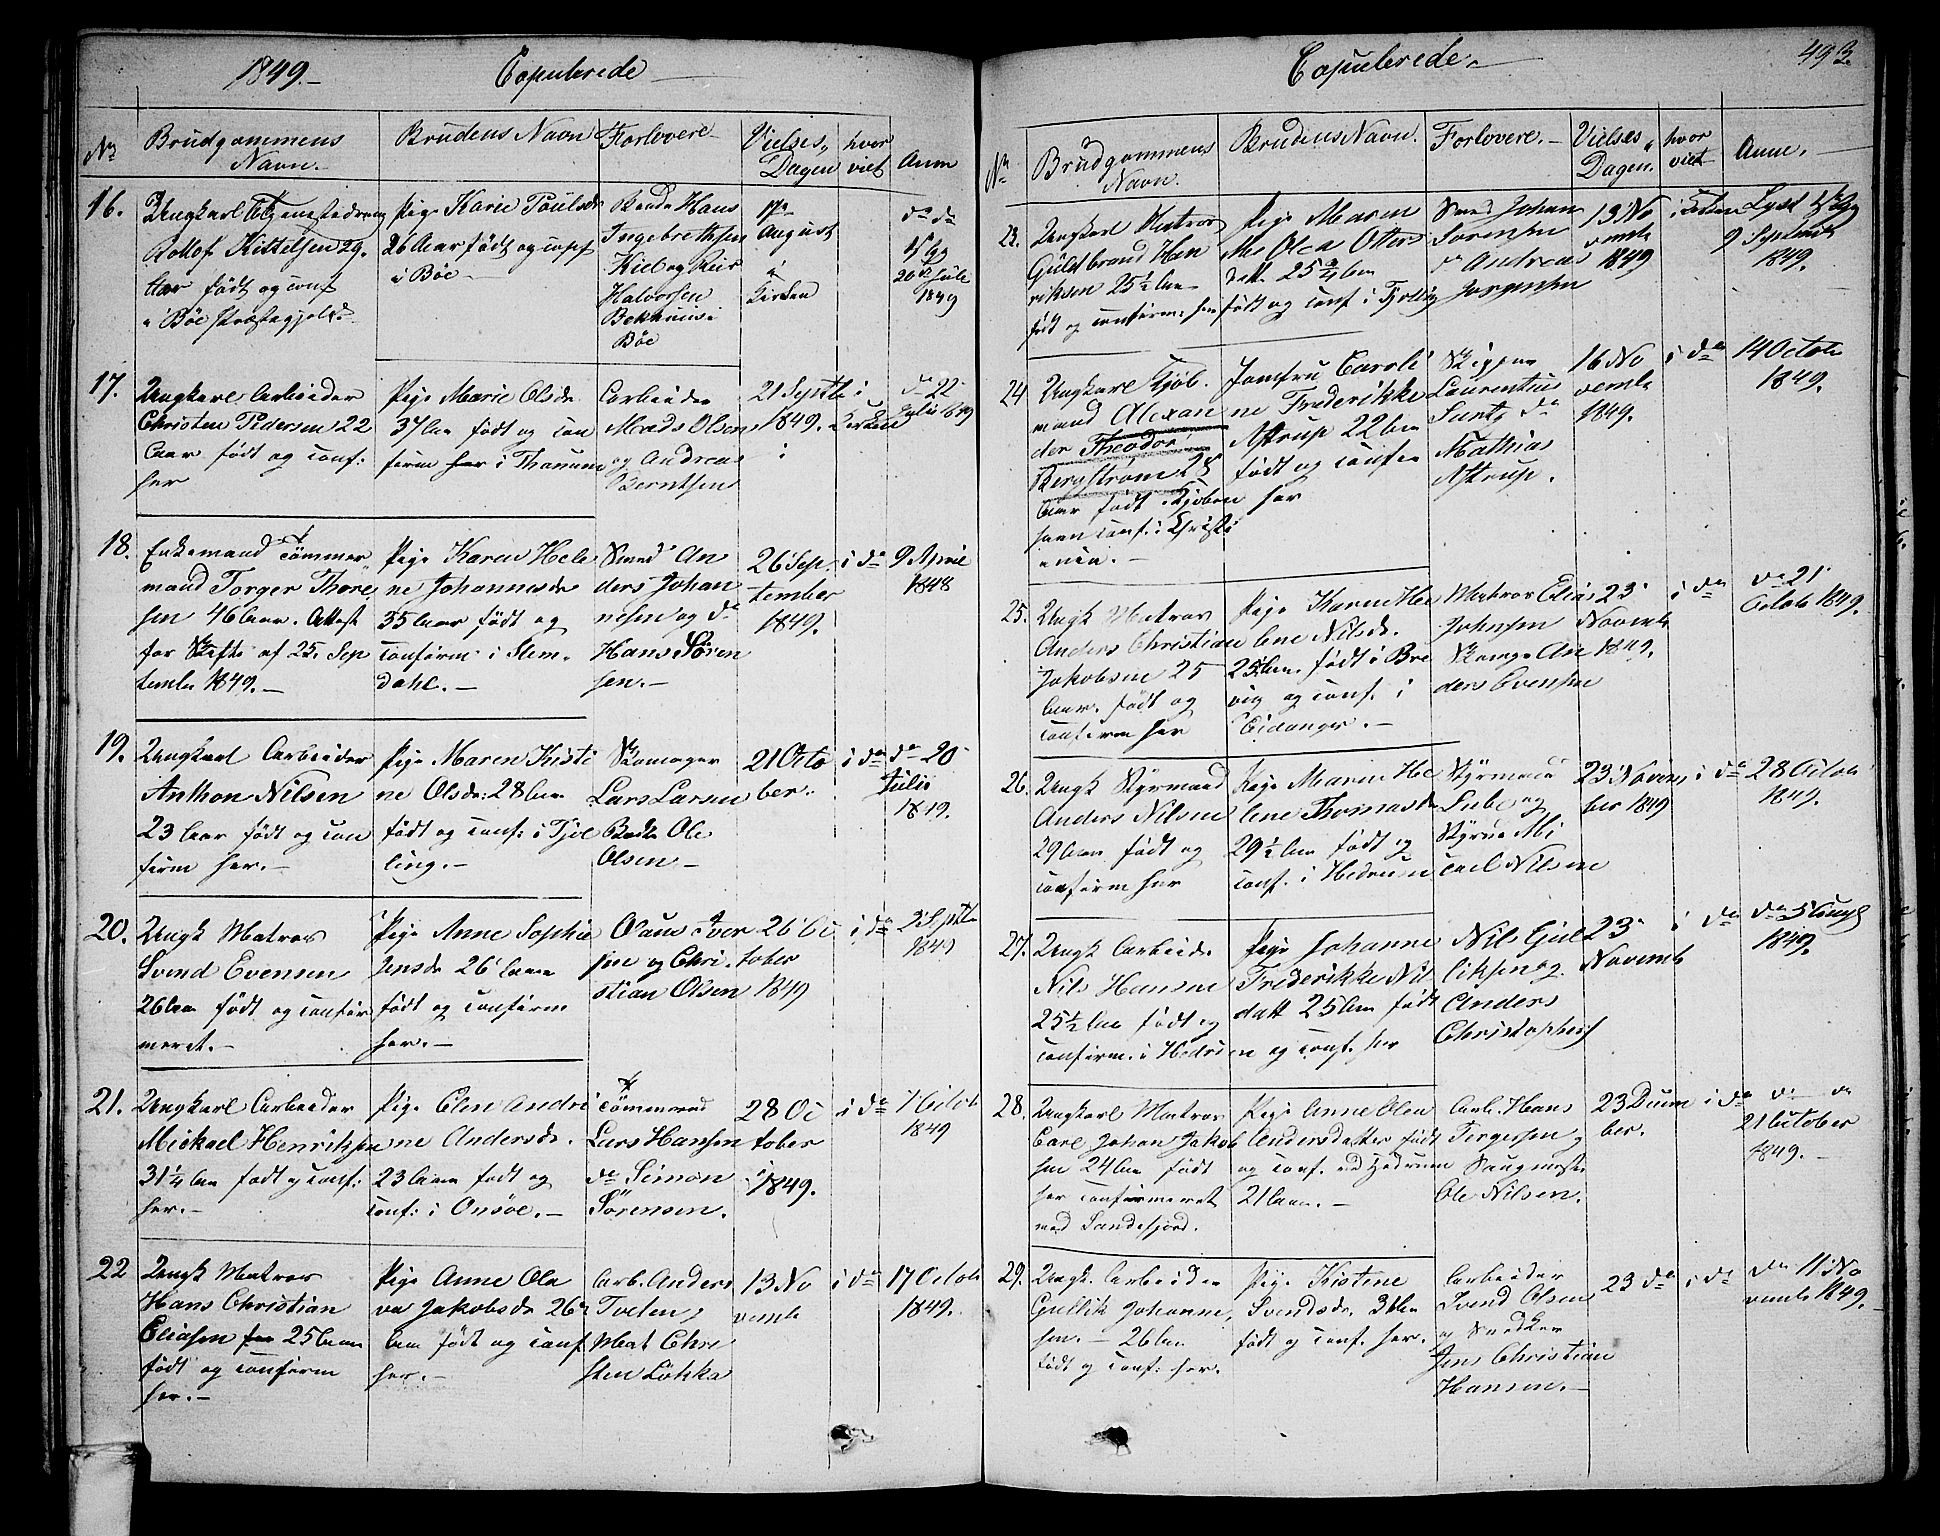 1849.- Copulerede
No Brudgommens Navn.-
Brudens Navn
Forlovere
Vielses Dagen
hvor viet
Anm
16.
Ungkarl Tjenestedreng
Rollof Kittelsen 29.
Aar født og conf
i Bøe Præstegjeld.
Pige Karie Poulsdr
26 Aar født og conf
i Bøe-
Bonde Hans
Ingebrethsen
Kiel og Peir
Halvorsen
i
Bøe
17de
August
i
Kirken
do do
20de Juli
1849
17.
Ungkarl Arbeider
Christen Pedersen 22
Aar født og conf:
her
Pige Marie Olsdr
37 Aar født og con
firm her i Thanum
Arbeider
Mads Olsen
og Andreas
Berntsen
21 Septb
1849.
i Kirken
do 22
Julii 1849
18.
Enkemand Tømmer
mand Torger Thore
sen 46 Aar. Attest
for Skifte af 25. Sep
tember 1849.-
Pige Karen Hele
ne Johannesdr
35 Aar født og
confirm i Slem-
dahl.-
Smed An
ders Johan
nesen og do
Hans Sören
sen.-
26 Sep
tember
1849.
i do
9 April
1848
19.
Ungkarl Arbeider
Anthon Nilsen
23 Aar født og con
firm her.-
Pige Maren Kristi
ne Olsdr: 28 Aar
født og conf: i Tjöl
ling.-
Skomager
Lars Larsen
Ole
Olsen-
21 Octo
ber.
i do
do 20
Julii
1849.
20.
Ungk Matros
Svend Evensen
26 Aar født og confir
meret.-
Pige Anne Sophie
Jensdr 26 Aar
født og confirm
her.-
Olaus Iver
sen og Chri
stian Olsen
26 Oc
tober
1849
i do
23 Septb
1849
21.
Ungkarl Arbeider
Mickael Henriksen
31 1/4 Aar født og conf:
her.-
Pige Elen Andri
ne Andersdr.
23 Aar født og
conf: i Onsøe.-
Tömmermd
Lars Hansen
do Simon
Sörensen.
28 Oc
tober
1849.
i do
7 Octob
1849
22
Ungk Matros
Hans Christian
Eliasen 25 Aar
født og confirm
her.-
Pige Anne Ole
va Jakobsdr 26
Aar født og conf
her.-
Arb. Anders
Tveten,
Mat Chri
sten Lökka
13 No
vemb
i do
17 Octob
1849.
Copulerede.-
493.
No Brudgommens Navn.
Brudens Navn.
Forlovere.-
Vielses Dagen.
hvor viet
Anm.
23.
Ungkarl Matros
Guldbrand Hen
riksen 25 1/2 Aar
født og confirm: her
Pige Maren
Olea Otters
datt 25 3/4 Aar
født og conf i Tjölling
Smed Johan
Sörensen
do Andreas
Jörgensen
13 No
vemb
1849
i Kirken
Lyst
9 Septemb
1849.
24
Ungkarl Kjöb-
mand Alexan
der Theodor
Bergström 28
Aar født i Kjöben
havn conf. i Christi
ania.-
Jomfru Caroli
ne Frederikke
Astrup 22 Aar
født og conf
her
Skipper
Laurentius
do
Mathias
Astrup.
16 No
vemb
1849.
i do
14 Octob
1849.
25.
Ungk Matros
Anders Christian
Jakobsen 25
Aar. født og
confirm her
Pige Karen He
lene Nilsdr.
23 Aar. født i Bre
vig og conf. i
Eidanger.-
Matros Elias
Johnsen
An
ders Evensen
23
Novemb
1849.
i do
do 21
Octob 1849.
26.
Ungk Styrmand
Anders Nilsen
29 Aar født og
confirm her
Pige Maren He
lene Thomasdr
29 1/2 Aar født og
conf. i Hedrum
Styrmand
og
Styrm Mi
cael Nilsen
23 Novem
ber 1849
i do
28 Octob
1849.
27.
Ungk Arbeider
Nils Hansen
25 1/2 Aar født og
confirm. i Hedrum
Pige Johanne
Frederikke Nils
datt 25 Aar født
og conf. her
Nils Gul
liksen og
Anders
Christophers
23
Novemb
i do
do 5 Aug
1849.
28.
Ungkarl Matros
Carl Johan Jakob
sen 24 Aar født
her confirmeret
ved Sandefjord.
Pige Anne Olea
Andersdatter født
og conf. ved Hedrum
21 Aar.-
Arb. Hans
Torgersen og
Ole Nilsen.
23 Decem
ber.
i do
do do
21 October
1849.-
29.
Ungk. Arbeider
Gullik Johanne
sen.- 26 Aar
født og conf: her.
Pige Kistine
Svendsdr. 31 Aar
født og conf. her.
Arbeider
Svend Olsen
og Snedker
Jens Christian
Hansen.-
23 do
i do
do 11 No
vemb 1849.